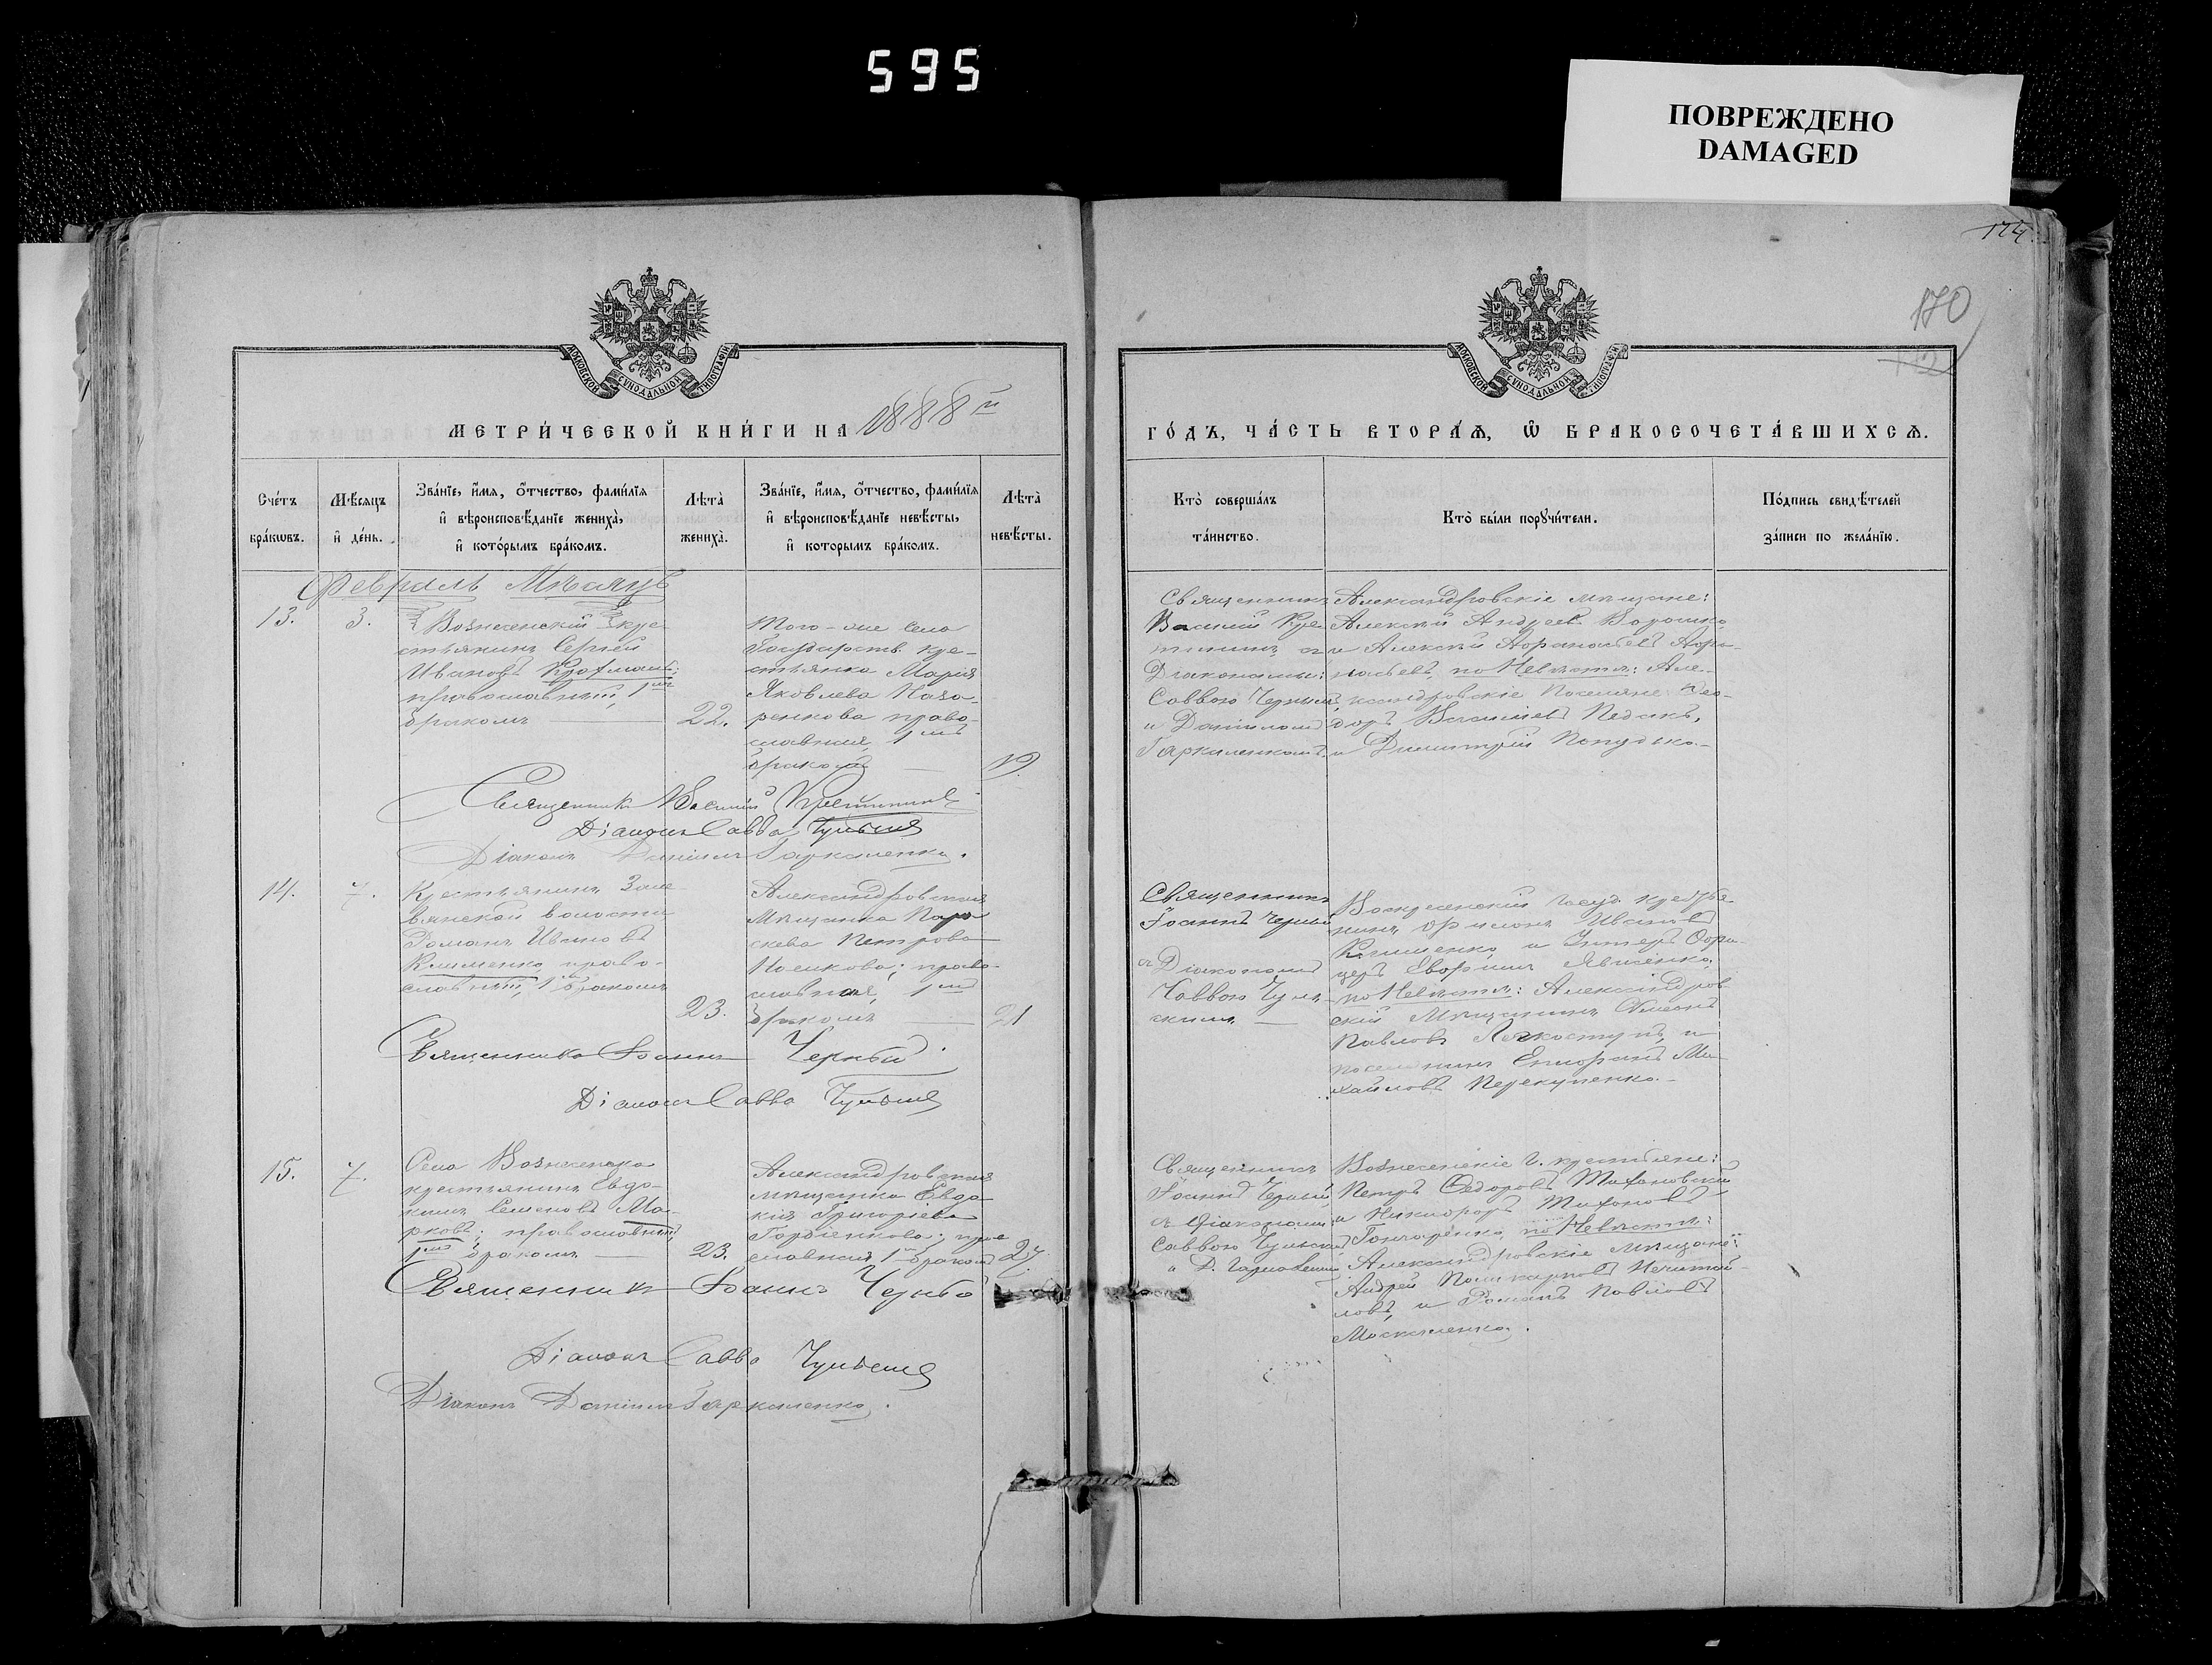 595
ПОВРЕЖДЕНО
DAMAGED
124
170
МОСКОВСКОЙ СѴНОДАЛЬНОЙ ТИПОГРАФІИ
МОСКОВСКОЙ СѴНОДАЛЬНОЙ ТИПОГРАФІИ
МЕТРИ́ЧЕСКОЙ КНИ́ГИ НА 1888й
ГО́ДЪ, ЧА́СТЬ ВТОРА́Ѧ, Ѡ҆ БРАКОСОЧЕТА́ВШИХСѦ.
Сче́тъ
бра́кѡвъ.
Мѣ́сяцъ
и҆ де́нь.
Зва́нїе, и҆́мя, ѻ҆́тчество, фами́лїя
и҆ вѣроисповѣ́данїе жениха̀,
и҆ кото́рымъ бра́комъ.
Лѣта̀
жениха̀.
Зва́нїе, и҆́мя, ѻ҆́тчество, фами́лїя
и҆ вѣроисповѣ́данїе невѣ́сты,
и҆ которымъ бра́комъ.
Лѣта̀
невѣ́сты.
Кто̀ соверша́лъ
та́инство.
Кто̀ бы́ли порꙋчи́тели.
По́дпись свидѣ́телей
за́писи по жела́нїю.
Февраль Мѣсяцъ
13.
3.
Вознесенскій кре-
стьянинъ Сергей
Ивановъ
православный, 1мъ
бракомъ
22.
Того-же села
Государств. кре-
стьянка Марія
Яковлева Наза-
ренкова право-
славная, 1мъ
бракомъ
19.
Священникъ
Василій Кре-
съ
Діаконами:
Саввою
и Даніиломъ
Гаркаленкомъ
Александровскіе мѣщане:
Алексѣй Андреевъ Ворошко
и Алексѣй Афанасьевъ Афа-
насьевъ, по Невѣстѣ: Але-
ксандровскіе Поселяне: Ѳео-
доръ Васильевъ Педакъ,
и Димитрій
Священникъ Василій
Діаконъ Савва
Діаконъ Даніилъ Гаркаленко.
14.
7.
Крестьянинъ
волости
Романъ Ивановъ
Клименко право-
славный, 1 бракомъ
23.
Александровская
Мѣщанка Пара-
скева Петрова
Носикова; право-
славная, 1мъ
бракомъ
21
Священникъ
Іоаннъ Черный
съ Діакономъ
Саввою
Воскресенскій Госуд. крестья-
нинъ Ивановъ
Клименко, и Унтеръ Офи-
церъ
по Невѣстѣ: Александров-
скій Мѣщанинъ Симеонъ
Павловъ и
поселянинъ Епифанъ Ми-
хайловъ Перекупенко.
Священникъ Іоаннъ Черный
Діаконъ Савва
15.
7.
Села Вознесенска
крестьянинъ Евдо-
кимъ Семеновъ Ма-
рковъ; православный,
1мъ бракомъ
23.
Александровская
мѣщанка Евдо-
кія Григоріева
Гордіенкова; право-
славная 1 бракомъ
27.
Священникъ
Іоаннъ Черный,
съ діакономъ
Саввою
и Д.
Вознесенскіе Г. крестьяне:
Петръ Ѳедоровъ
и Никифоръ
Гончаренко, по Невѣстѣ:
Александровскіе мѣщане:
Андрей Поликарповъ
и Романъ Павловъ
Москаленко.
Священникъ Іоаннъ Черный
Діаконъ Савва
Діаконъ Даніилъ Гаркаленко.